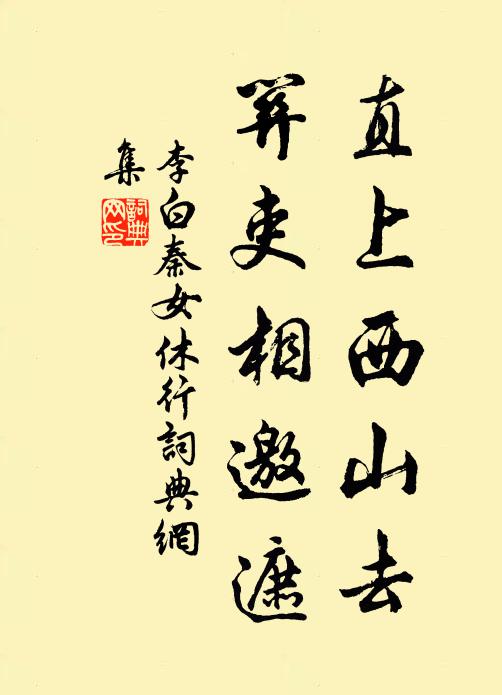 直上西山去
關吏相邀遮
李白秦女休行詞典網
集
詞典
网印